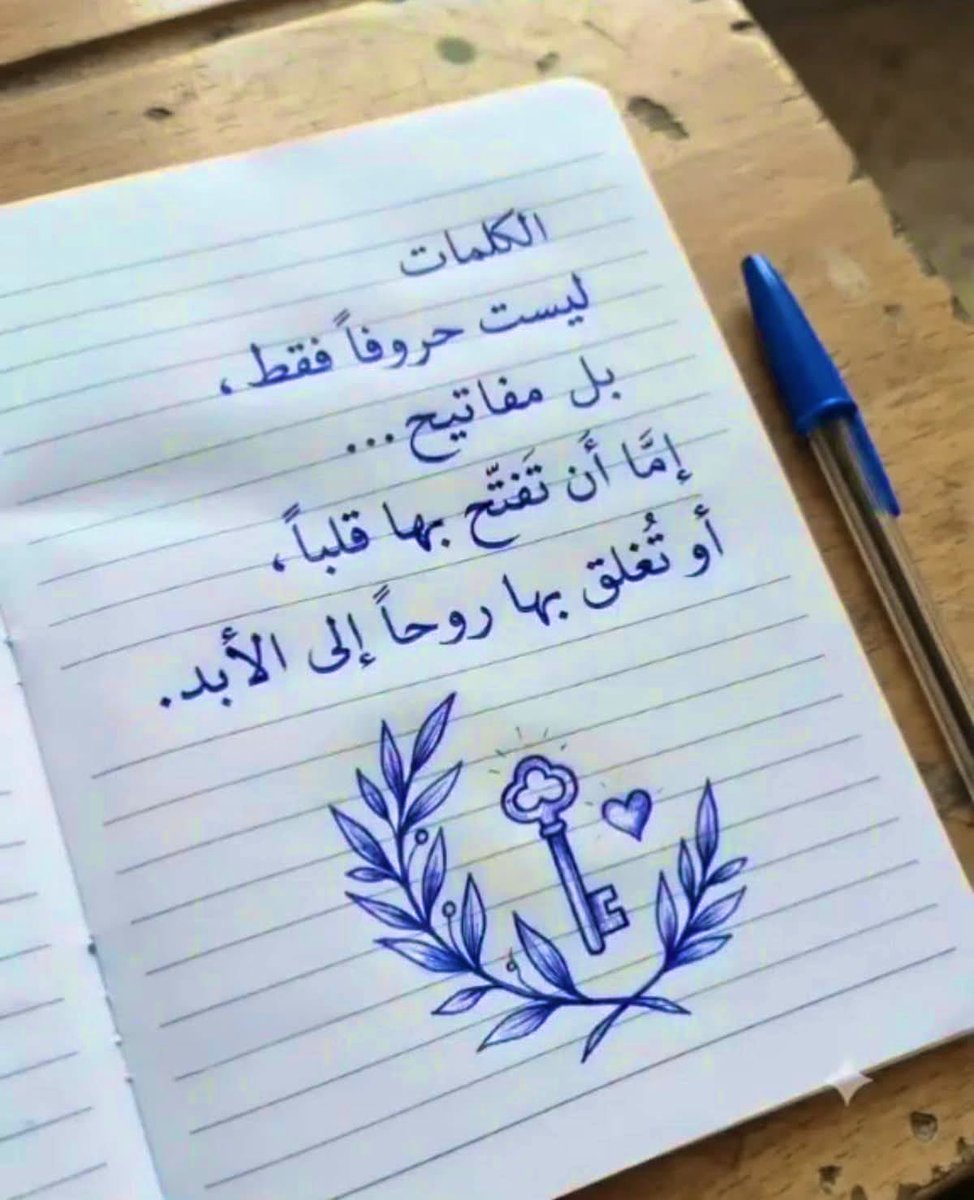 الكلمات
ليست حروفاً فقط،
بل مفاتيح...
إمَّا أَن تَفتَّح بها قلباً،
أو تُغلق بها روحاً إلى الأبد.